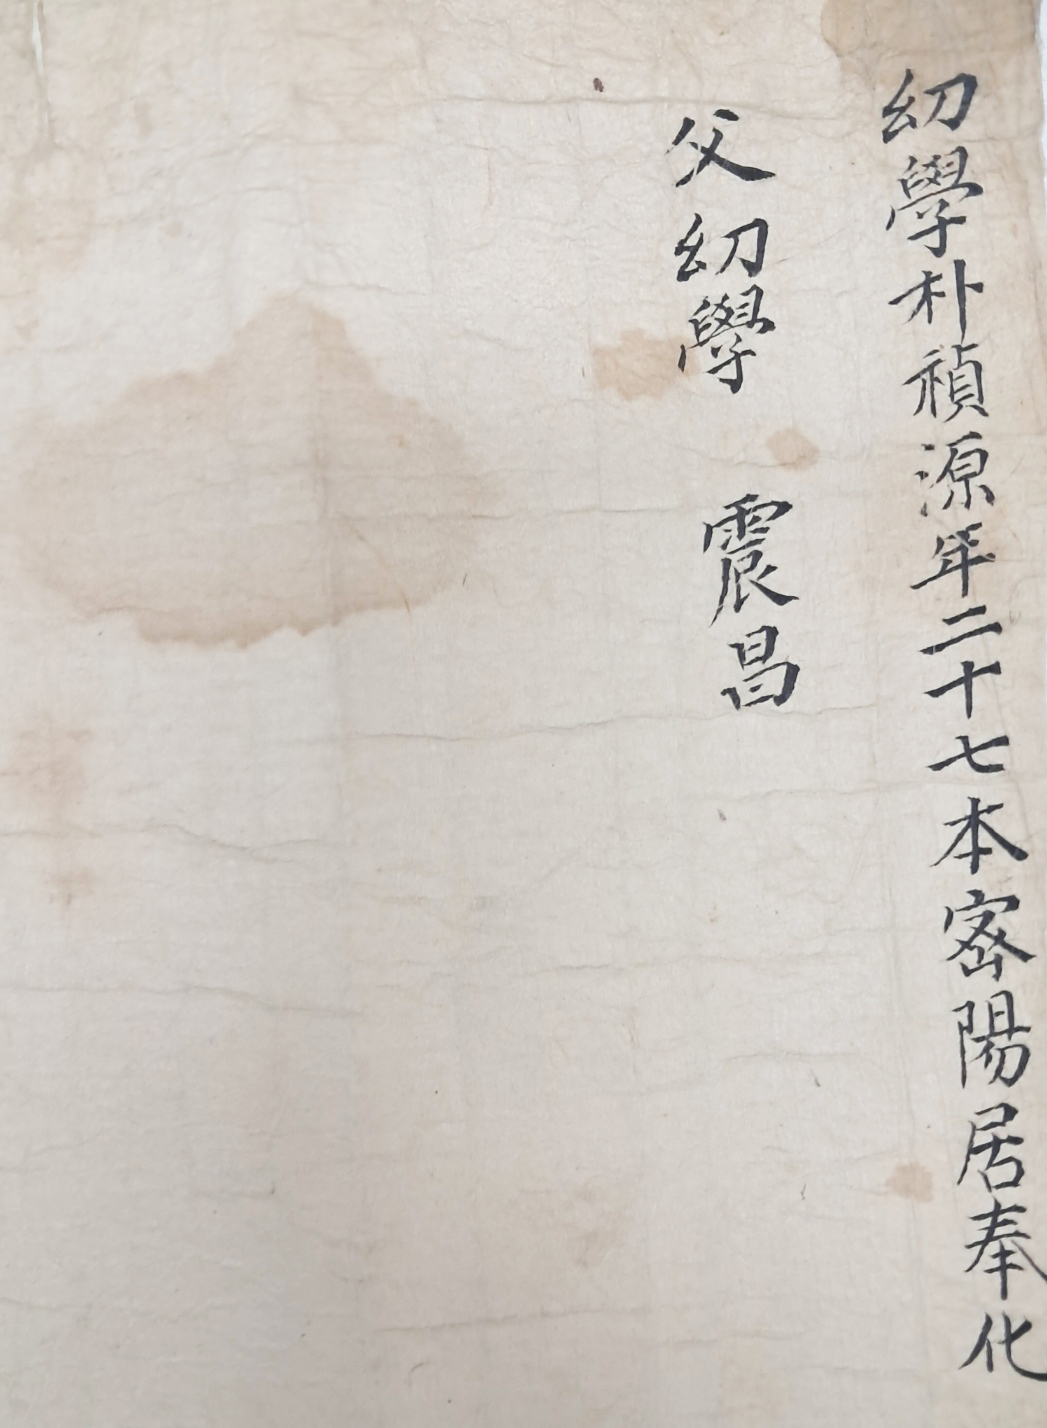 幼學朴禎源年二十七本密陽居奉化
父幼學 震昌